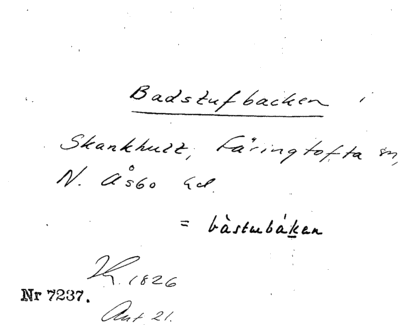 Badstufbacken i
Skankhult, Färingtofta sn,
N. Åsbo hd.
= bàstubáken
1826
Nr 7237.
Ant 21.